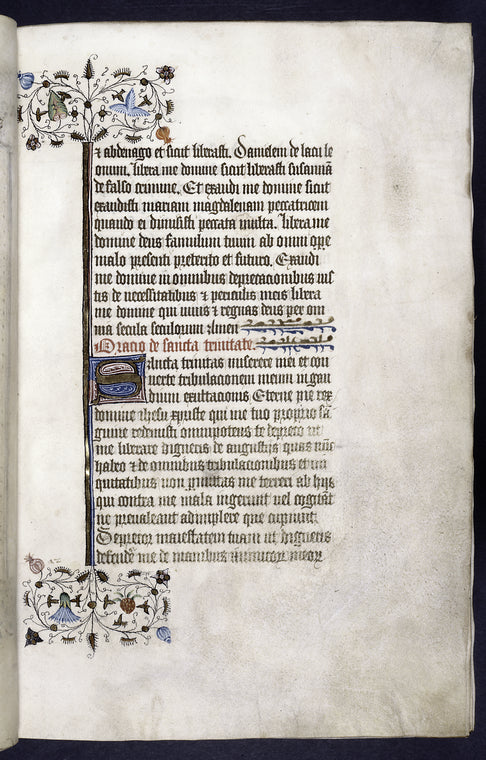 7
⁊ abdenago et sicut liberasti. Danielem de lacu le
onum. libera me domine sicut liberasti susannā
de falso crimine. Et exaudi me domine sicut
exaudisti mariam magdalenam peccatricem
quando ei dimisisti peccata multa. libera me
domine deus famulum tuum ab omni opе
malo presenti preterito et futuro. Exaudi
me domine in omnibus deprecacionibus
tis de necessitatibus ⁊ periculis meis libera
me domine qui uiuis ⁊ regnas deus per om
nia secula seculorum amen
Oracio de sancta trinitate.
Sancta trinitas miserere mei et con
uerte tribulacionem meum in gau
dium exultacionis. Eterne me rex
domine ihesu xpiste qui me tuo proprio sā
guine redemisti omnipotens te deprecor ut
me liberare digneris de angustijs quas nūc
habeo ⁊ de omnibus tribulacionibus et in
iquitatibus non permittas me terreri ab hijs
qui contra me mala ingerunt uel cogitāt
ne preualeant adimplere que cupiunt.
Deprecor maiestatem tuam ut digneris
defende me de manibus inimicoꝝ meoꝝ